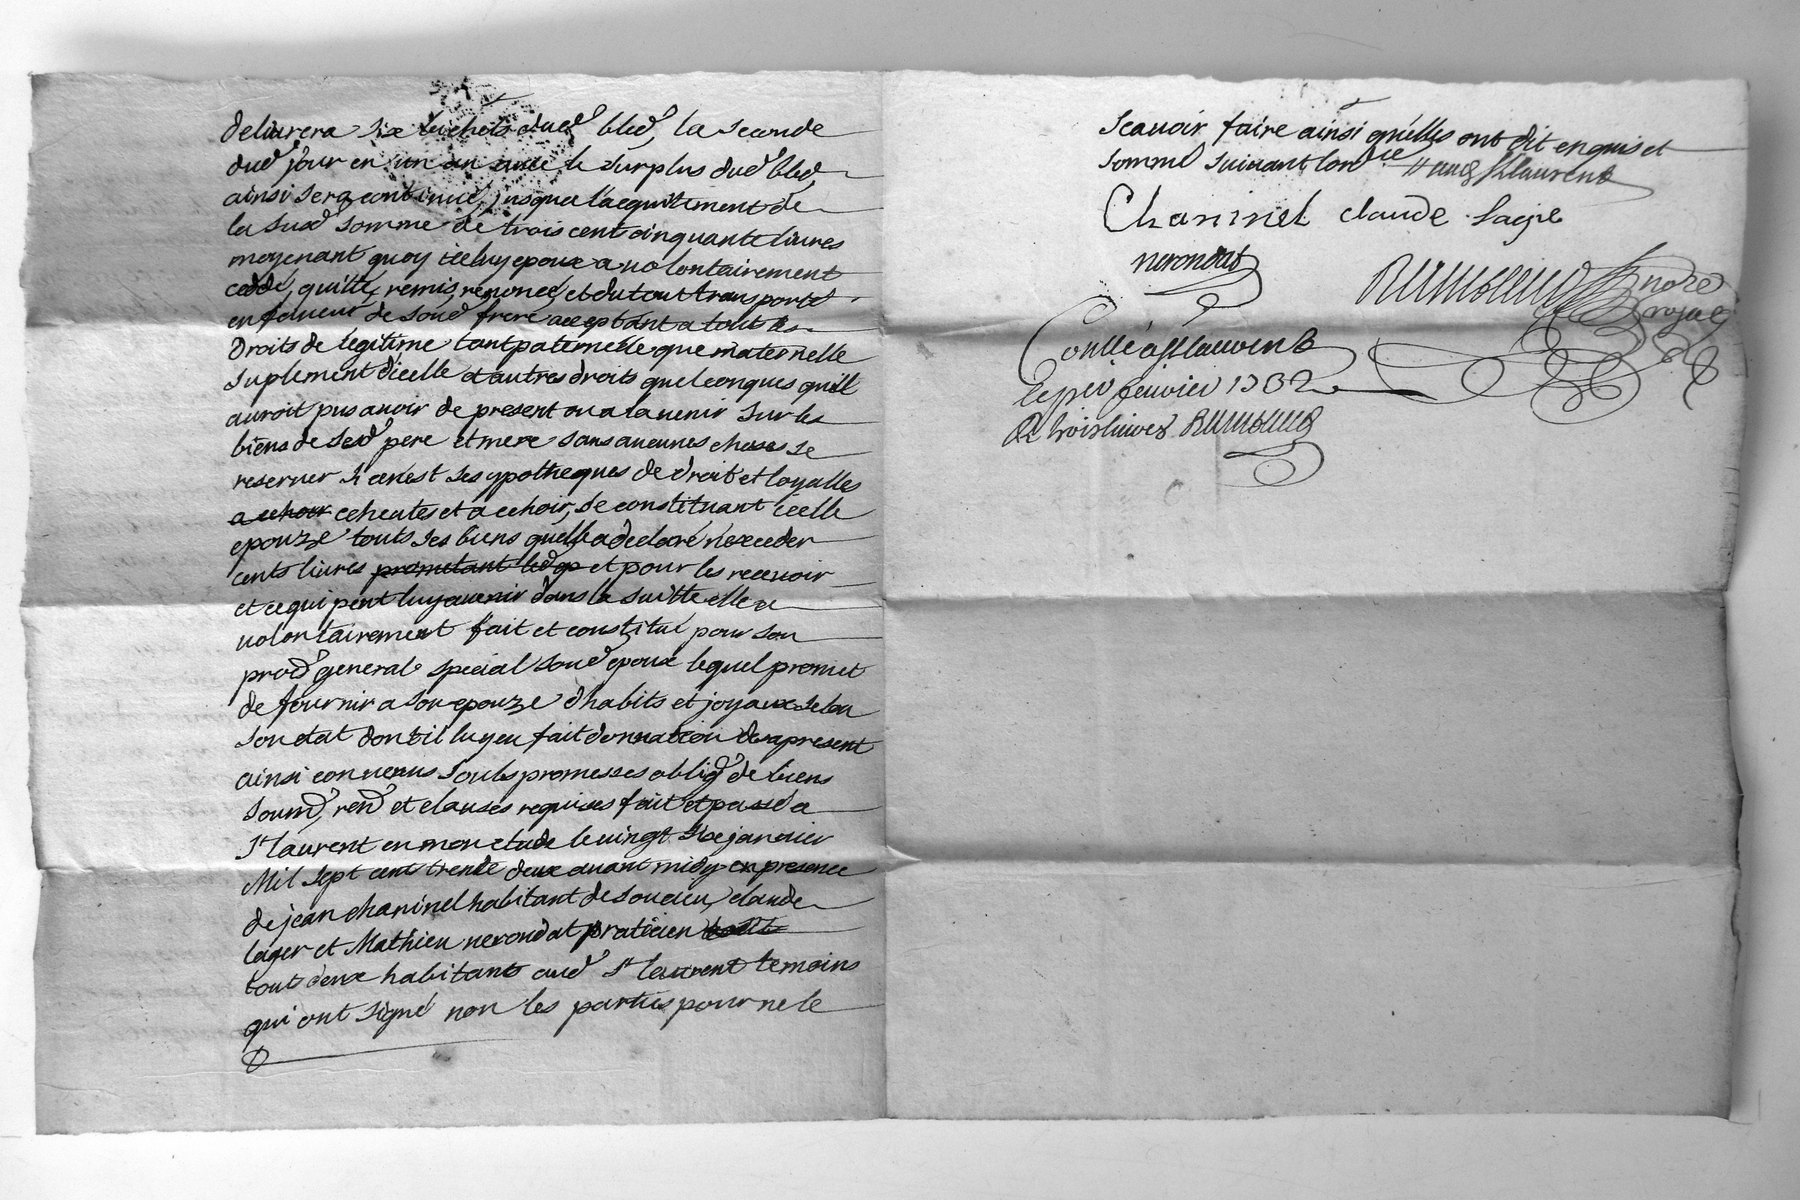 delivrera six bichets dud bled, la seconde
dud jour en un an avec le surplus dud bled,
ainsi sera continué, jusques l'acquittement de
la susd somme de trois cent cinquante livres
moyenant quoy iceluy epoux a volontairement
ceddé, quitté, remis, renoncé, et du tout transporté
en faveur de soud frere acceptant a tout ses
Droits de legitime tant paternelle que maternelle
suplement d'icelle et autres droits quelconques quill
auroit pus avoir de present ou a la venir sur les
biens de sesd pere et mere sans aucunes choses se
reserver si ce nest ses ypotheques de droit et loyalles
a echoir echeutes et a echoir, se constituant icelle
epouze touts ses biens quelle a declaré n'exceder
cents livres prometant led et pour les recevoir
et ce qui peut luy avenir dans la suitte elle a
volontairement fait et constitué pour son
procr general special soud epoux lequel promet
de fournir a son epouze d'habits et joyaux selon
son etat dont il luy en fait donnation des apresent
ainsi convenus soubs promesses oblig de biens
soumd, rend et clauses requises fait et passé a
St laurent en mon etude le vingt six janvier
Mil sept cent trente deux avant midy en presence
de jean chaninel habitant de soucieu, claude
lager et Mathieu nerondat praticien
touts deux habitants aud St laurent temoins
qui ont signé non les parties pour ne le
scavoir faire ainsi qu'elles ont dit enquis et
sommé suivant lordce
Chaninel claude Lagie
nerondat
notre
royal
Conllé a St laurent
le pr fevrier 1732
Rx trois livres